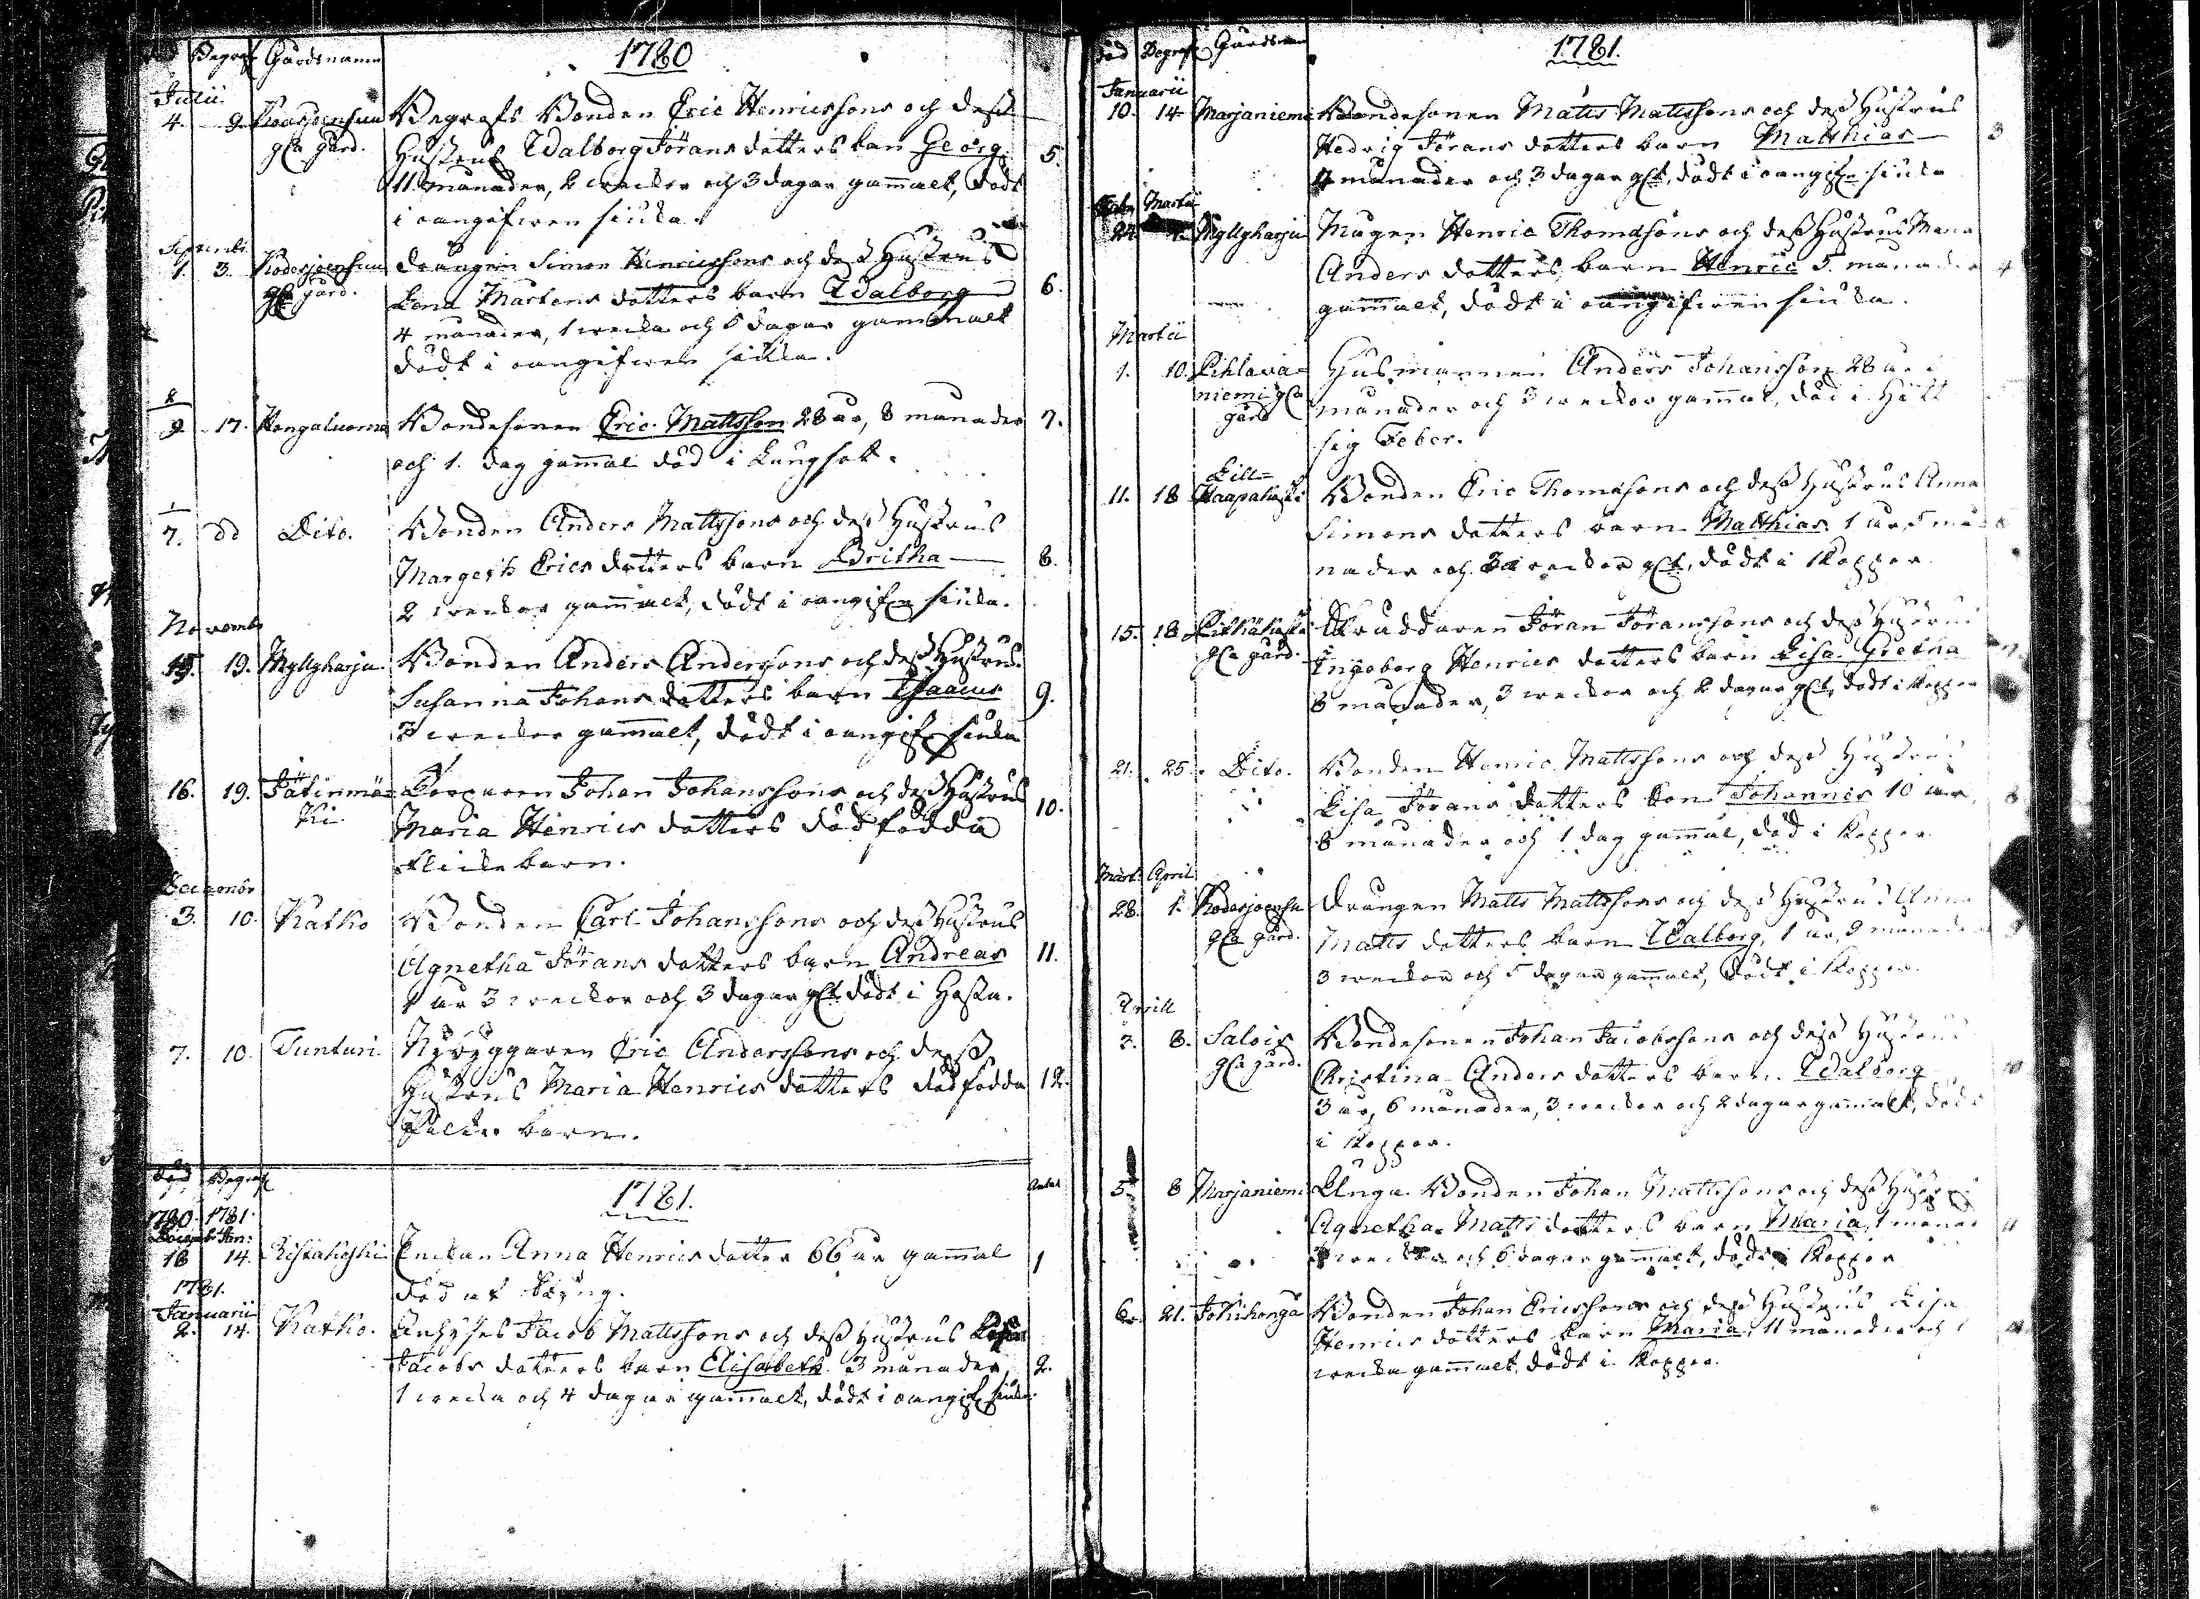 Död Begraf Gårdsnamn 1780
Julii
4. 9. Begrofs Bonden Eric Henricssons och dess
gla gård. Hustrus Walborg Jörans dotters barn Georg 5.
11 månader, 2 weckor och 3 dagar gammalt, dödt
i oangifwen siuka.
Septembr
1. 3. Kodesjoensuu Drängen Simon Henricssons och dess Hustrus
gla gård. Lena Mårtens dotters barn Walborg 6.
4 månader, 1 wecka och 5 dagar gammalt
dödt i oangifwen siuka.
8
9 17. Kangaluoma Bondesonen Eric Mattsson 28 år, 8 månader 7.
och 1. dag gammal död i Lungsot.
1
7. dd Dito. Bonden Anders Mattssons och dess Hustrus
Margeth Erics dotters barn Britha 8.
2 weckor gammalt, dödt i oangifn siuka.
Novembr
15. 19. Myllyharju. Bonden Anders Anderssons och dess Hustrus
Susanna Johans dotters barn Isaacus 9.
3 weckor gammalt, dödt i oangifn siuka
16. 19. Jätinmä= Torparen Johan Johanssons och dess Hustrus
ki. Maria Henrics dotters dödfödda 10.
flicke barn.
Decembr
3. 10. Katko Bonden Carl Johanssons och dess Hustrus
Agnetha Jörans dotters barn Andreas 11.
1 år 3 weckor och 3 dagar glt dödt i Hosta.
7. 10. Tunturi. Nybyggaren Eric Anderssons och dess
Hustrus Maria Henrics dotters dödfödda 12.
barn.
Död Begraf 1781. Antal
1780 1781.
Decemb: Jan:
18 14. Enkan Anna Henrics dotter 66 år gammal 1
död af
1781.
Januarii
2. 14. Katko. Jacob Mattssons och dess Hustrus
Jacobs dotters barn Elisabeth 3 månader, 2.
1 wecka och 4 dagar gammalt, dödt i oangifn siuka.
Död Begraf Gårdsnamn 1781.
Januarii
10. 14 Marjaniemi Bondesonen Matts Mattssons och dess Hustrus
Hedvig Jörans dotters barn Matthias 3
4 månader och 3 dagar glt, dödt i oangifn siuka
Martii
24 Myllyharju Mågen Henric Thomassons och dess Hustrus
Anders dotters barn Henric 5. månader 4
gammalt, dödt i oangifwen siuka.
Martii
1. 10. Pihlava= Husmannen Anders Johansson 28 år
niemi gla månader och 3 weckor gammal, död i Hätt
gård sig Feber.
Lill=
11. 18 Haapakoski Bonden Eric Thomassons och dess Hustrus Anna
Simons dotters barn Matthias 1 år må
nader och weckor glt, dödt i Koppor
15. 18 Skräddaren Jöran Jöranssons och dess Hustrus
gla gård. Ingeborg Henrics dotters barn Lisa Gretha
8 månader, 3 weckor och 2 dagar glt, dödt i Koppor
21. 25. Dito. Bonden Henric Mattssons och dess Hustrus
Lisa Jörans dotters son Johannes 10 år,
8 månader och 1 dag gammal, död i Koppor
Mart: April
28. 1. Kodesjoensu Drängen Matts Mattssons och dess Hustrus Anna
gla gård. Matts dotters barn Walborg, 1 år, 9 månader
3 weckor och 5 dagar gammalt, dödt i Koppor.
Aprill
2. 8. Salois Bondesonen Johan Jacobssons och dess Hustrus
gla gård. Christina Anders dotters barn Walborg 10
3 år, 6 månader, 3 weckor och 2 dagar gammalt, dödt
i Koppor.
5 8 Marjaniemi Unga Bonden Johan Mattssons och dess Hustrus
Agnetha Matts dotters barn Maria, 1 månad 11
weckor och 6 dagar gammalt, dödt i Koppor
6. 21. Jokikangas Bonden Johan Ericssons och dess Hustrus Lisa
Henrics dotters barn Maria, 11 månader och 1
wecka gammalt, dödt i Koppor.